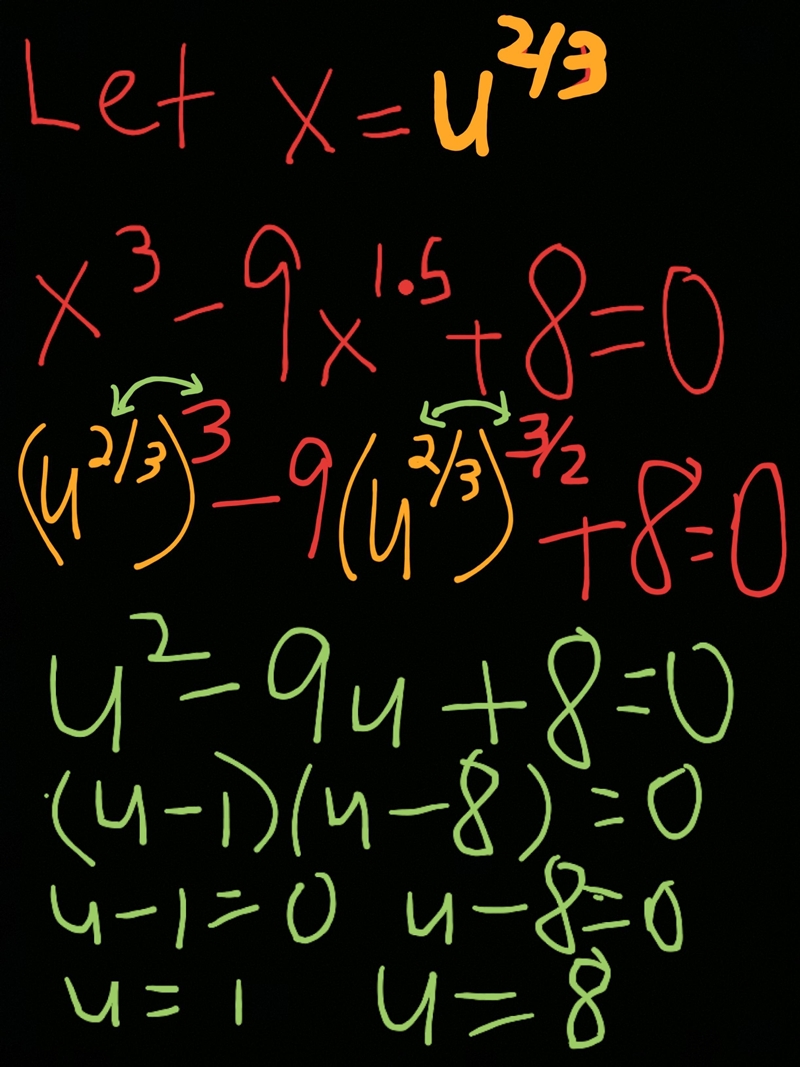 Let x = u^2/3
x^3 - 9x^1.5 + 8 = 0
(u^2/3)^3 - 9(u^2/3)^3/2 + 8 = 0
u^2 - 9u + 8 = 0
(u - 1)(u - 8) = 0
u - 1 = 0 u - 8 = 0
u = 1 u = 8